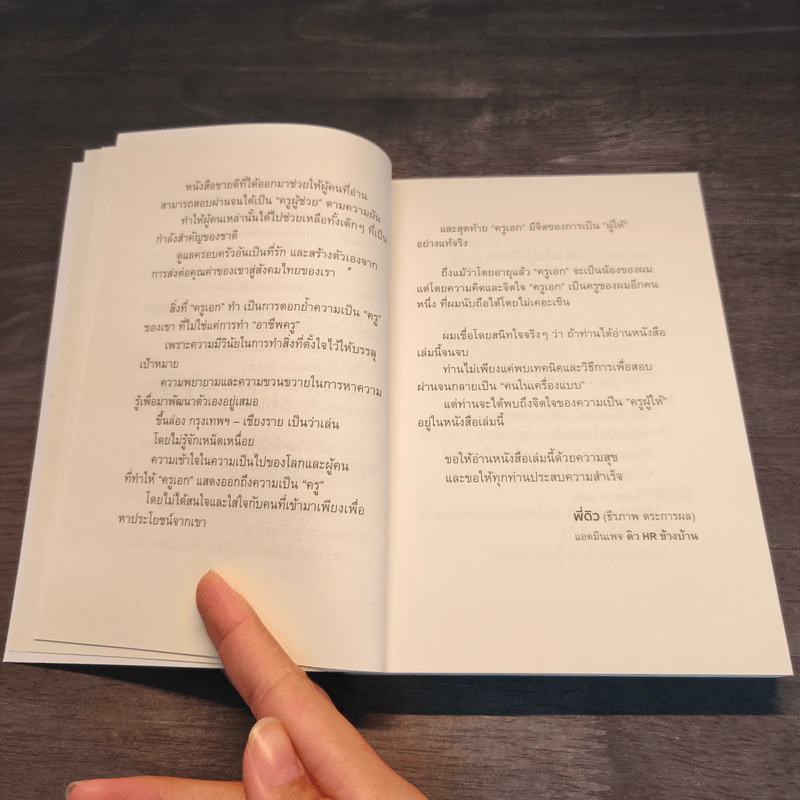 หนังสือขายดีที่ได้ออกมาช่วยให้ผู้คนที่อ่าน
สามารถสอบผ่านจนได้เป็น “ครูผู้ช่วย” ตามความฝัน
ทำให้ผู้คนเหล่านั้นได้ไปช่วยเหลือทั้งเด็กๆ ที่เป็น
กำลังสำคัญของชาติ
ดูแลครอบครัวอันเป็นที่รัก และสร้างตัวเองจาก
การส่งต่อคุณค่าของเขาสู่สังคมไทยของเรา
สิ่งที่ “ครูเอก” ทำ เป็นการตอกย้ำความเป็น “ครู”
ของเขา ที่ไม่ใช่แค่การทำ “อาชีพครู”
เพราะความมีวินัยในการทำสิ่งที่ตั้งใจไว้ให้บรรลุ
เป้าหมาย
ความพยายามและความขวนขวายในการหาความ
รู้เพื่อมาพัฒนาตัวเองอยู่เสมอ
ขึ้นล่อง กรุงเทพฯ – เชียงราย เป็นว่าเล่น
โดยไม่รู้จักเหน็ดเหนื่อย
ความเข้าใจในความเป็นไปของโลกและผู้คน
ที่ทำให้ “ครูเอก” แสดงออกถึงความเป็น “ครู”
โดยไม่ได้สนใจและใส่ใจกับคนที่เข้ามาเพียงเพื่อ
หาประโยชน์จากเขา
และสุดท้าย “ครูเอก” มีจิตของการเป็น “ผู้ให้”
อย่างแท้จริง
ถึงแม้ว่าโดยอายุแล้ว “ครูเอก” จะเป็นน้องของผม
แต่โดยความคิดและจิตใจ “ครูเอก” เป็นครูของผมอีกคน
หนึ่ง ที่ผมนับถือได้โดยไม่เคอะเขิน
ผมเชื่อโดยสนิทใจจริงๆ ว่า ถ้าท่านได้อ่านหนังสือ
เล่มนี้จนจบ
ท่านไม่เพียงแค่พบเทคนิคและวิธีการเพื่อสอบ
ผ่านจนกลายเป็น “คนในเครื่องแบบ”
แต่ท่านจะได้พบถึงจิตใจของความเป็น “ครูผู้ให้”
อยู่ในหนังสือเล่มนี้
ขอให้อ่านหนังสือเล่มนี้ด้วยความสุข
และขอให้ทุกท่านประสบความสำเร็จ
พี่ดิว (ธีรภาพ ตระการผล)
แอดมินเพจ ดิว HR ข้างบ้าน